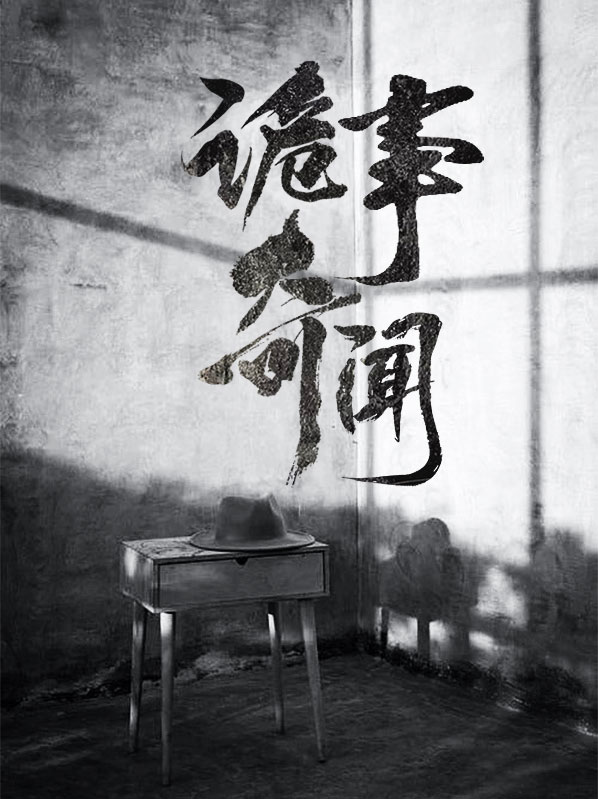 诡事
奇闻